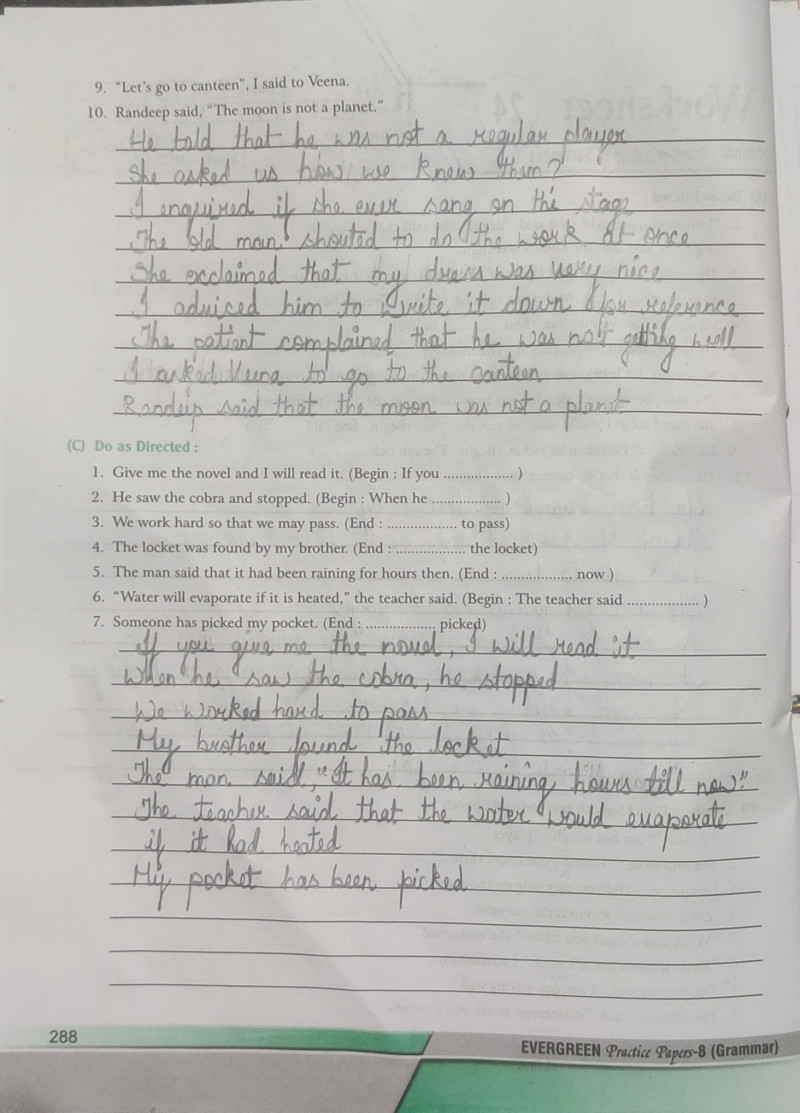 9. "Let's go to canteen", I said to Veena.
10. Randeep said, "The moon is not a planet."
He told that he was not a regular player
She asked us how we knew them?
I enquired if she ever sang on the stage
The old man shouted to do the work at once
She exclaimed that my dress was very nice
I adviced him to write it down for reference
The patient complained that he was not getting well
I asked Veena to go to the canteen
Randeep said that the moon was not a planet
(C) Do as Directed :
1. Give me the novel and I will read it. (Begin : If you .................. )
2. He saw the cobra and stopped. (Begin : When he .................. )
3. We work hard so that we may pass. (End : .................. to pass)
4. The locket was found by my brother. (End : .................. the locket)
5. The man said that it had been raining for hours then. (End : .................. now )
6. "Water will evaporate if it is heated," the teacher said. (Begin : The teacher said .................. )
7. Someone has picked my pocket. (End : .................. picked)
If you give me the novel, I will read it
When he saw the cobra, he stopped
We worked hard to pass
My brother found the locket
The man said, "It has been raining hours till now".
The teacher said that the water would evaporate
if it had heated
My pocket has been picked
288
EVERGREEN Practice Papers-8 (Grammar)